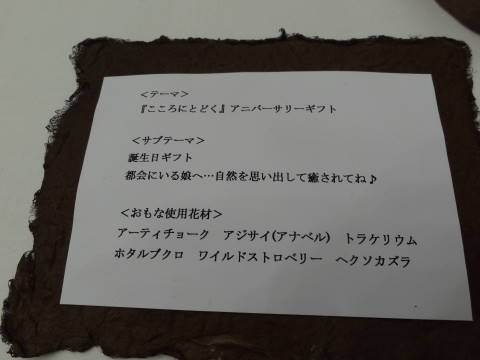 ＜テーマ＞
『こころにとどく』アニバーサリーギフト
＜サブテーマ＞
誕生日ギフト
都会にいる娘へ…自然を思い出して癒されてね♪
＜おもな使用花材＞
アーティチョーク　アジサイ(アナベル)　トラケリウム
ホタルブクロ　ワイルドストロベリー　ヘクソカズラ